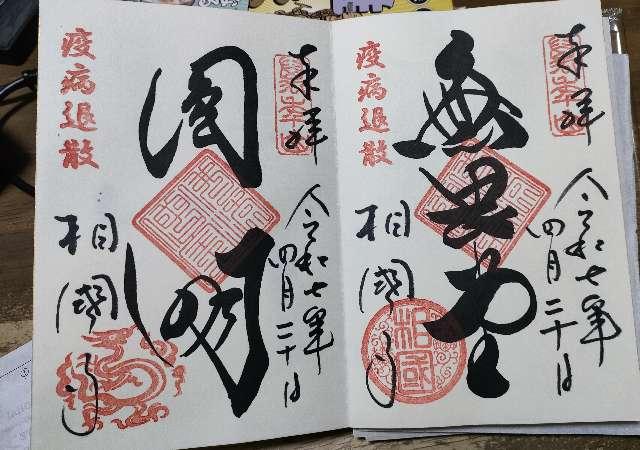 奉拝
令和七年四月二十日
無畏堂
疫病退散
相國寺
相国
奉拝
令和七年四月二十日
圓明
疫病退散
相國寺